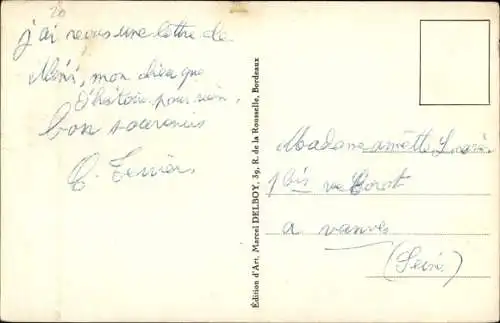 20
j'ai reçus une lettre de
Mémé, mon dieu que
d'histoire pour rien,
bon souvenir
Édition d'Art, Marcel DELBOY, 39, R. de la Rousselle, Bordeaux
Madame
1 bis rue Corot
a vanves
(Seine)